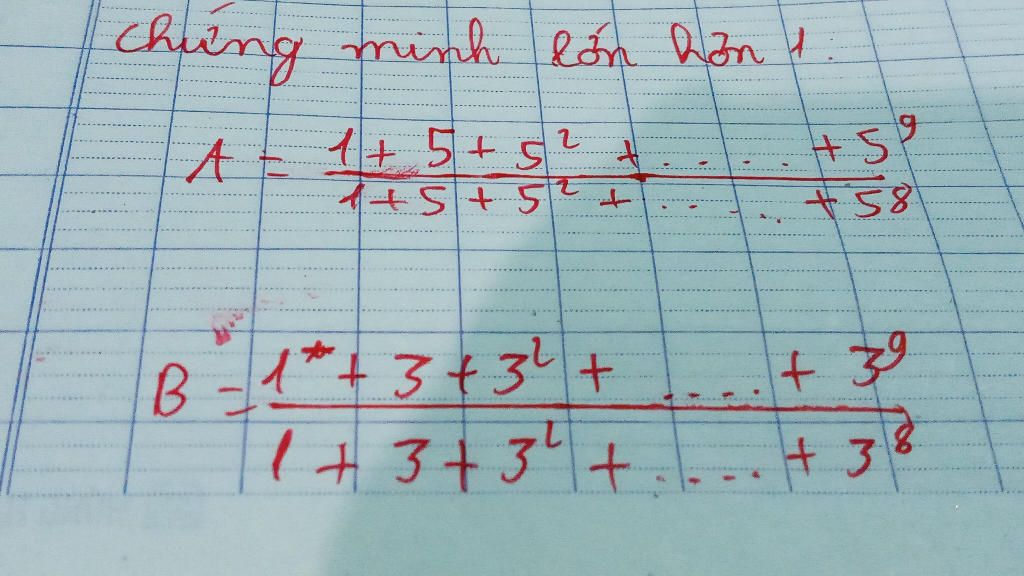 chứng minh lớn hơn 1:
A = \frac{1 + 5 + 5^2 + ..... + 5^9}{1 + 5 + 5^2 + ..... + 58}
B = \frac{1 + 3 + 3^2 + .... + 3^9}{1 + 3 + 3^2 + .... + 3^8}